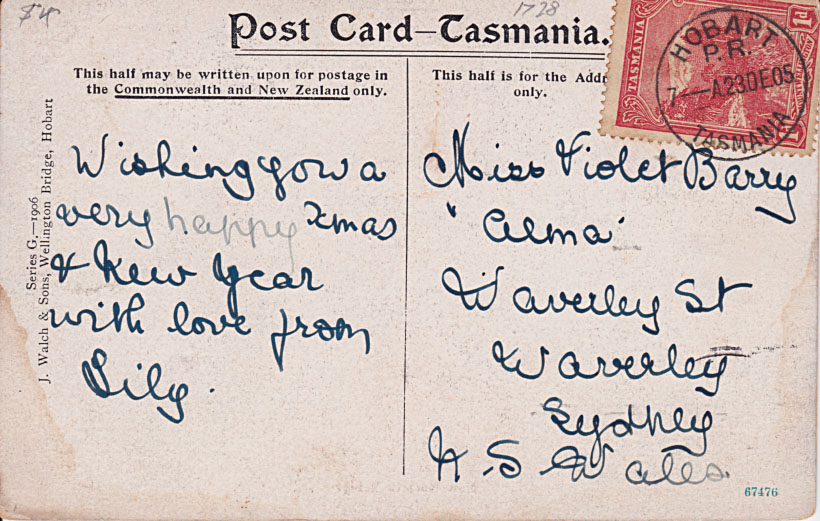 £4
1728
Post Card–Tasmania.
This half may be written upon for postage in
the Commonwealth and New Zealand only.
This half is for the Addr
only.
TASMANIA
1d
HOBART
P.R.
7-A23DE05
TASMANIA
Series G.—1906
J. Walch & Sons, Wellington Bridge, Hobart
Wishing you a
very happy Xmas
& New Year
with love from
Lily.
Miss Violet Barry
"Alma"
Waverley St
Waverley
Sydney
N. S. Wales
67476